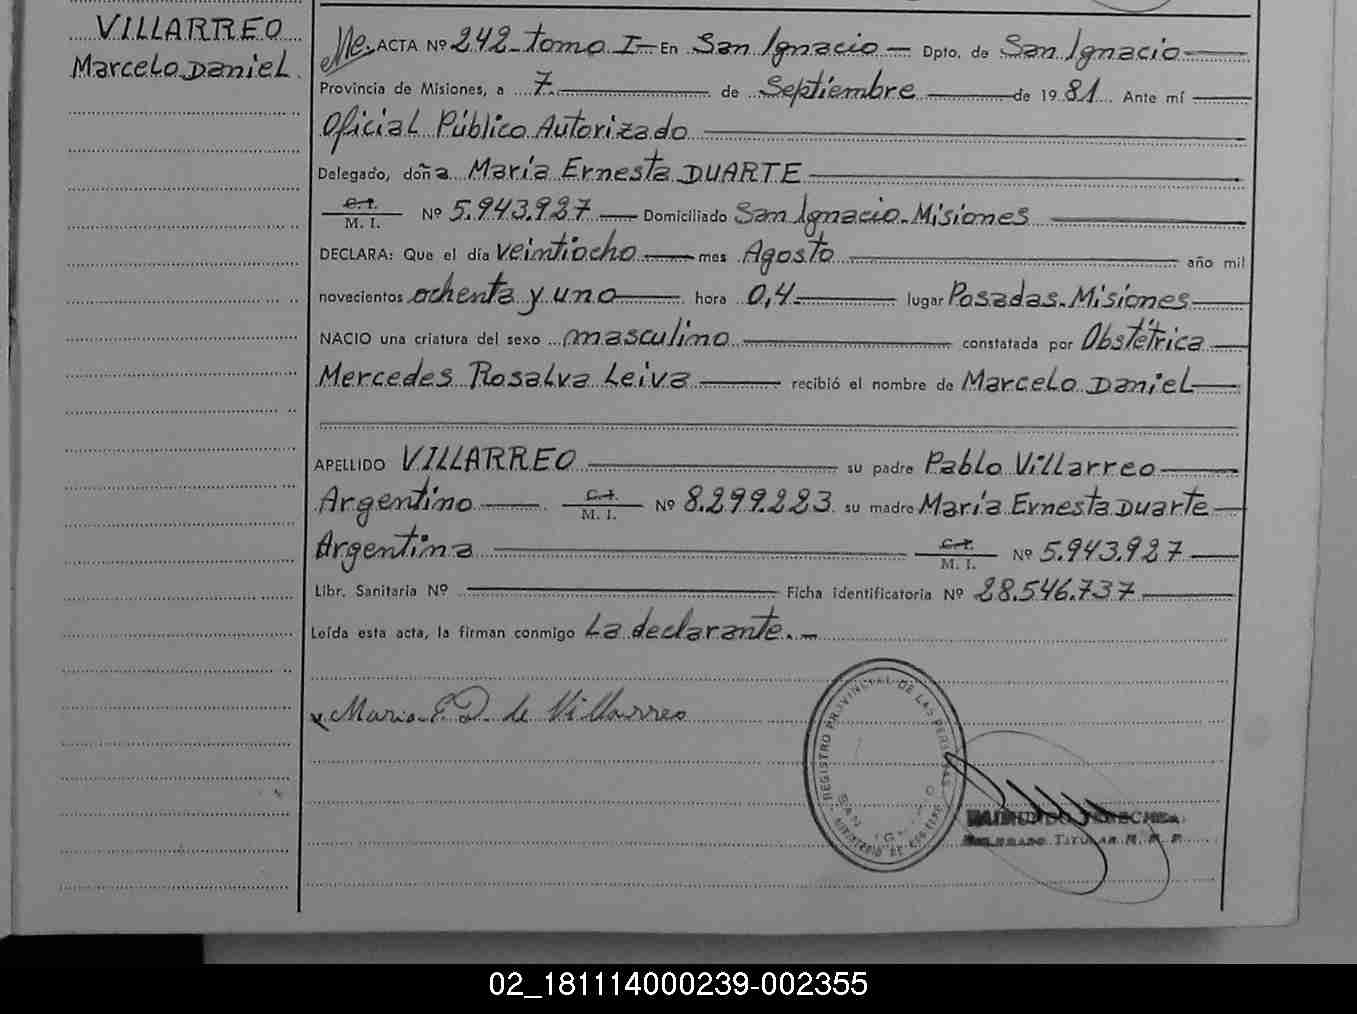 VILLARREO
Marcelo Daniel
ACTA Nº 242 - tomo I - En San Ignacio - Dpto. de San Ignacio
Provincia de Misiones, a 7 de Septiembre de 1981 Ante mí
Oficial Público Autorizado
Delegado, doña María Ernesta DUARTE
C.I.
M. I. Nº 5.943.927 Domiciliado San Ignacio - Misiones
DECLARA: Que el día veintiocho mes Agosto año mil
novecientos ochenta y uno hora 0,4 lugar Posadas - Misiones
NACIO una criatura del sexo masculino constatada por Obstétrica
Mercedes Rosalva Leiva recibió el nombre de Marcelo Daniel
APELLIDO VILLARREO su padre Pablo Villarreo
Argentino C.I. M. I. Nº 8.299.223 su madre María Ernesta Duarte
Argentina C.I. M. I. Nº 5.943.927
Libr. Sanitaria Nº Ficha identificatoria Nº 28.546.737
Leída esta acta, la firman conmigo La declarante. -
x Maria E. D. de Villarreo
REGISTRO PROVINCIAL DE LAS PERSONAS
SAN IGNACIO
MINISTERIO DE
RAIMUNDO
DELEGADO TITULAR R. P. P.
02_181114000239-002355